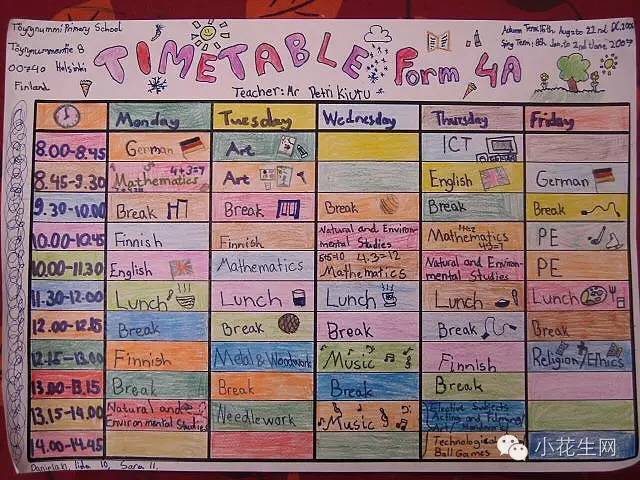 Töyrynummi Primary School
Töyrynummentie 8
00740 Helsinki
Finland
TIMETABLE Form 4A
Teacher: Mr Petri Kiuru
Monday Tuesday Wednesday Thursday Friday
8.00-8.45 German Art ICT
8.45-9.30 Mathematics 4+3=7 Art English German
9.30-10.00 Break Break Break Break Break
10.00-10.45 Finnish Finnish Natural and Environ-
mental Studies Mathematics PE
10.00-11.30 English Mathematics 5+5=10 4.3=12
Mathematics Natural and Environ-
mental Studies PE
11.30-12.00 Lunch Lunch Lunch Lunch Lunch
12.00-12.15 Break Break Break Break Break
12.15-13.00 Finnish Metal & Woodwork Music Finnish Religion/Ethics
13.00-13.15 Break Break Break Break
13.15-14.00 Natural and
Environmental Studies Needlework Music Elective Subjects
Acting and
14.00-14.45 Technological
Ball Games
Iida 10, Sara 11,
小花生网